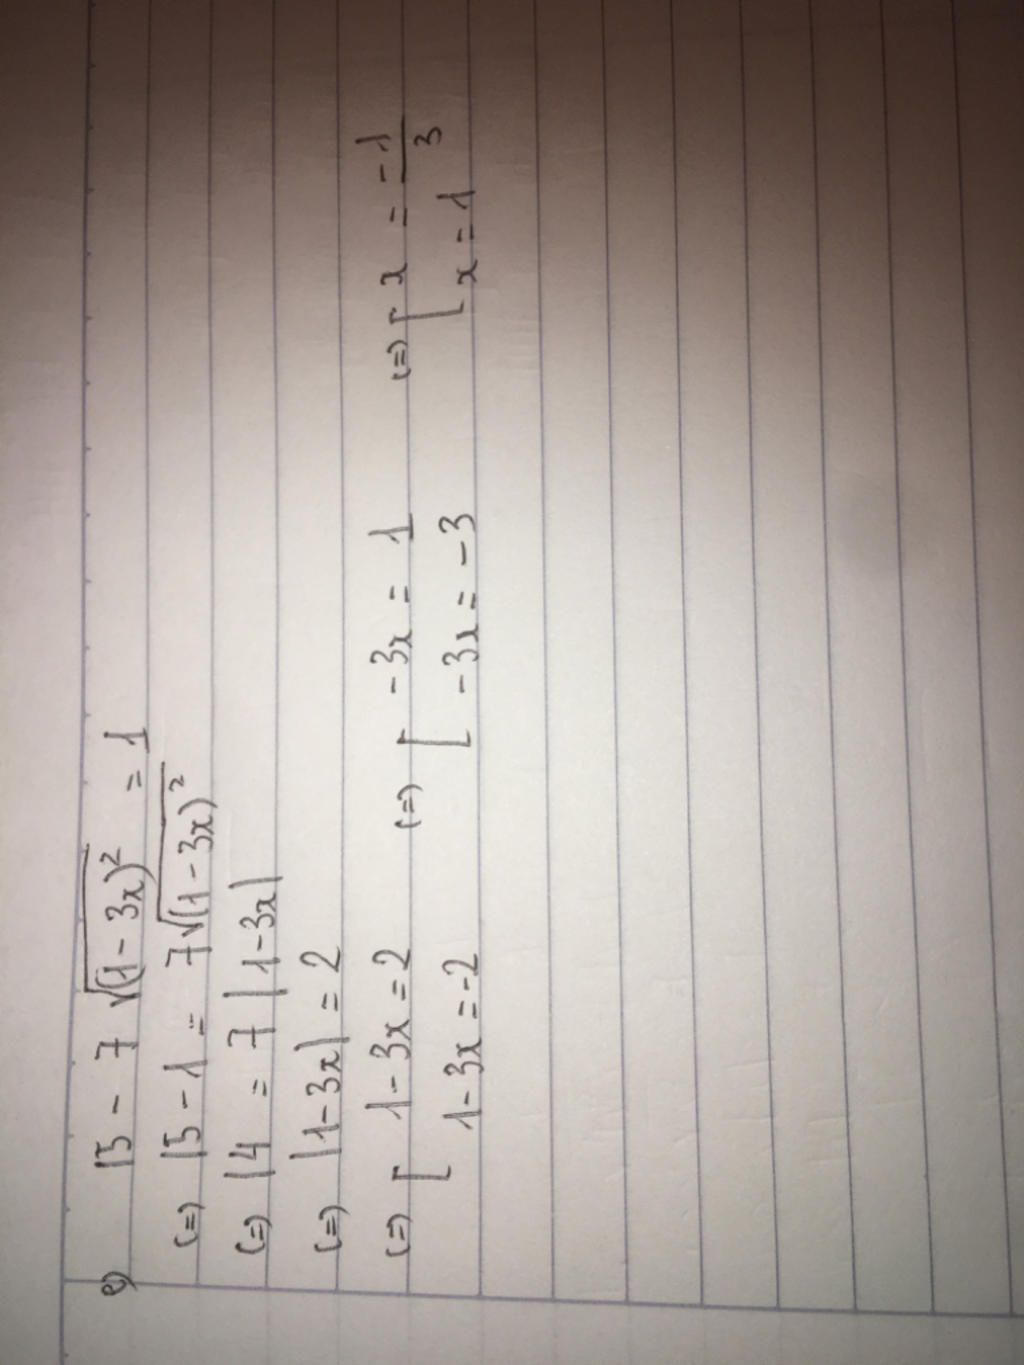 e) 15 - 7 √(1-3x)² = 1
(=) 15 - 1 = 7√(1-3x)²
(=) 14 = 7 |1-3x|
(=) |1-3x| = 2
(=) [ 1-3x = 2 (=) [ -3x = 1 (=) [ x = -1/3
1-3x = -2 -3x = -3 x = 1